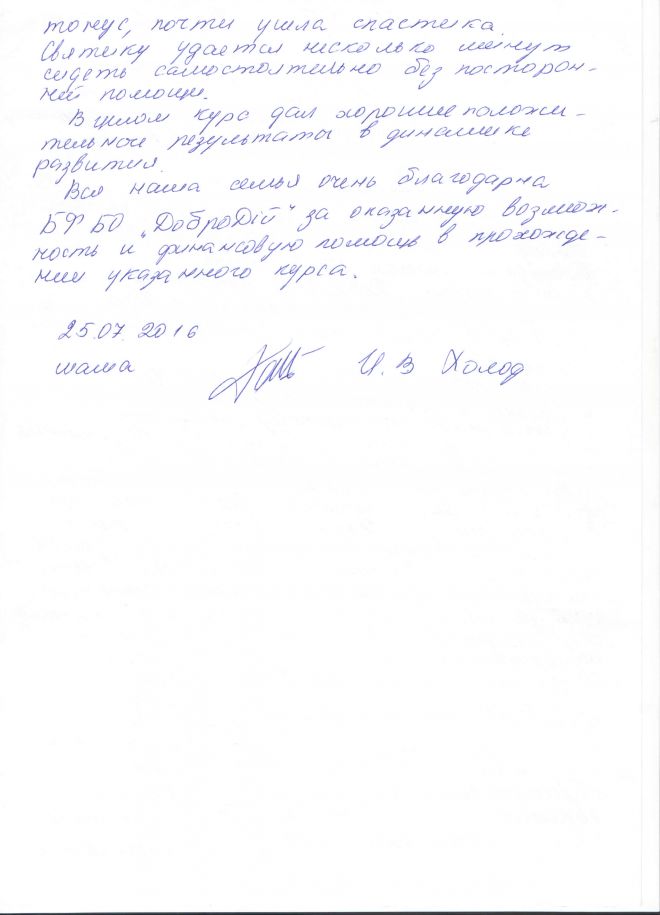 тонус, почти ушла спастика.
Святику удается несколько минут
сидеть самостоятельно без посторон-
ней помощи.
В целом курс дал хорошие положи-
тельные результаты в динамике
развития.
Вся наша семья очень благодарна
БФ БО „ДоброДій" за оказанную возмож-
ность и финансовую помощь в прохожде-
нии указанного курса.
25.07.2016
мама И.В Холод